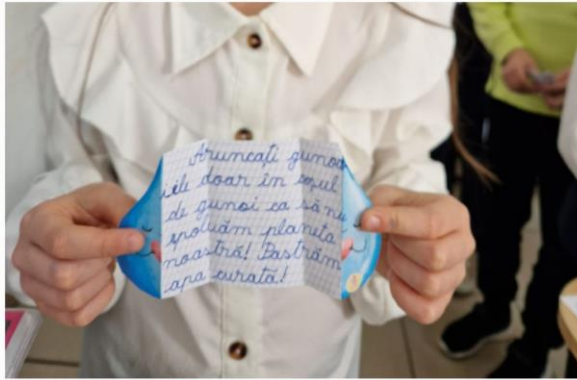 Aruncați gunoa
iele doar în coșul
de gunoi ca să nu
poluăm planeta
noastră! Păstrăm
apa curată!